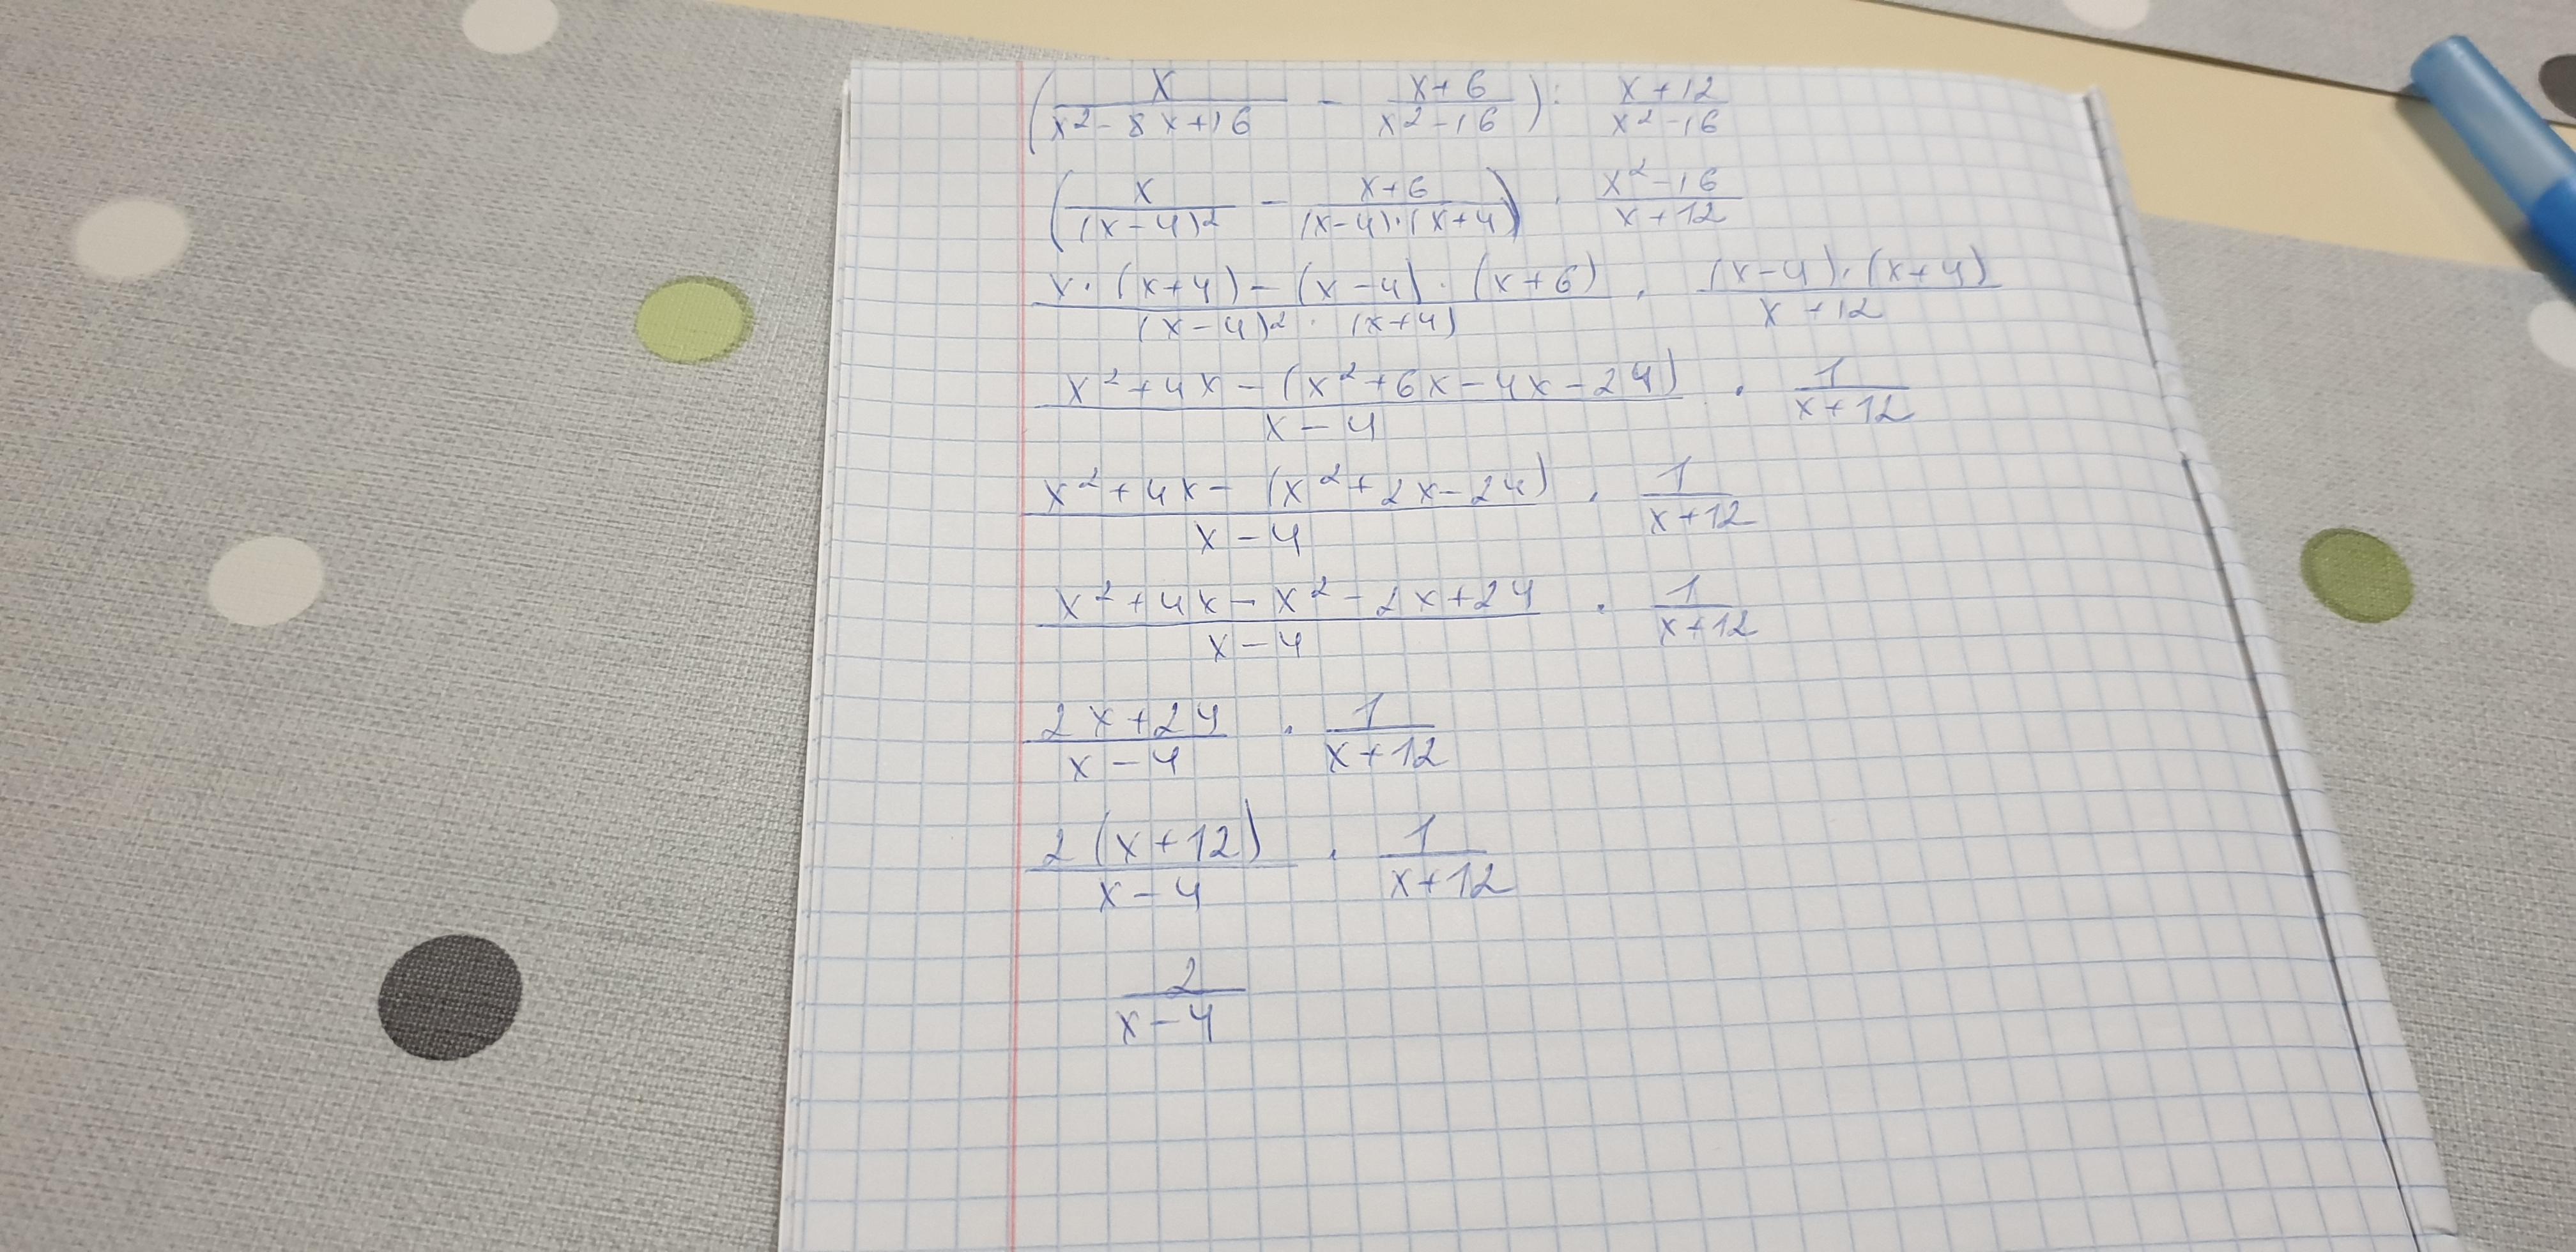 (x/(x²-8x+16) - (x+6)/(x²-16)) : (x+12)/(x²-16)
(x/(x-4)² - (x+6)/((x-4)·(x+4))) · (x²-16)/(x+12)
(x·(x+4)-(x-4)·(x+6))/((x-4)²·(x+4)) · ((x-4)·(x+4))/(x+12)
(x²+4x-(x²+6x-4x-24))/(x-4) · 1/(x+12)
(x²+4x-(x²+2x-24))/(x-4) · 1/(x+12)
(x²+4x-x²-2x+24)/(x-4) · 1/(x+12)
(2x+24)/(x-4) · 1/(x+12)
2(x+12)/(x-4) · 1/(x+12)
2/(x-4)